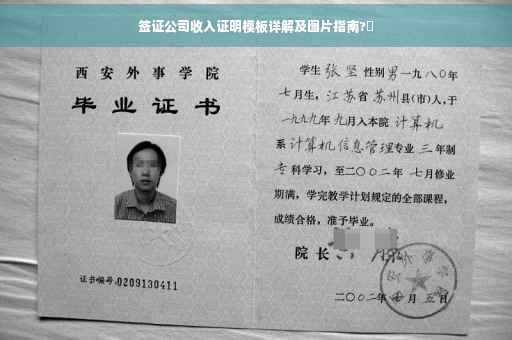 签证公司收入证明模板详解及图片指南?
西安外事学院
毕业证书
证书编号:0209130411
学生 张坚 性别 男 一九八〇年
七月生, 江苏省 苏州县(市)人,于
一九九九年 九月入本院 计算机
系 计算机信息管理专业 三 年制
专科学习,至二〇〇二年 七月修业
期满,学完教学计划规定的全部课程,
成绩合格,准予毕业。
院长
二〇〇二年 月 五 日